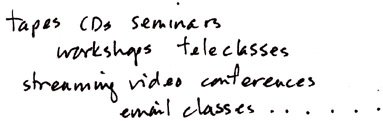 tapes CDs seminars
workshops teleclasses
streaming video conferences
email classes . . . . . .